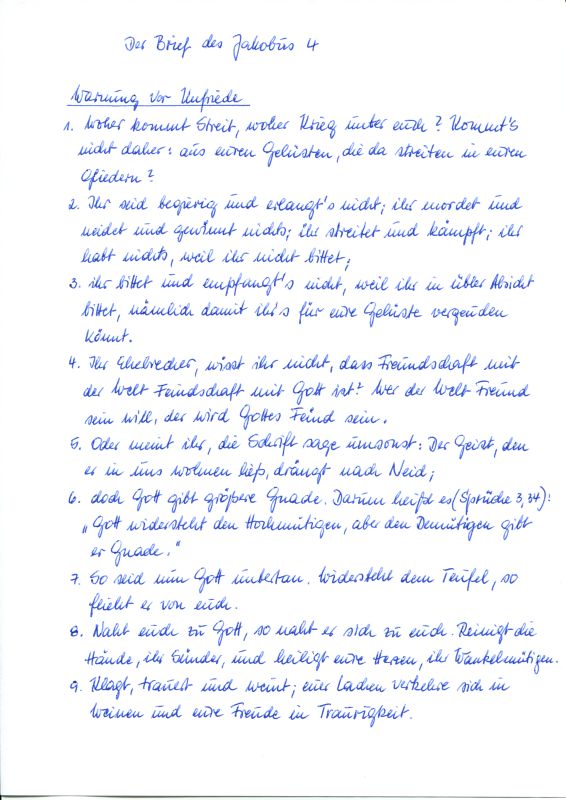 Der Brief des Jakobus 4
Warnung vor Unfriede
1. Woher kommt Streit, woher Krieg unter euch? Kommt's
nicht daher: aus euren Gelüsten, die da streiten in euren
Gliedern?
2. Ihr seid begierig und erlangt's nicht; ihr mordet und
neidet und gewinnt nichts; ihr streitet und kämpft; ihr
habt nichts, weil ihr nicht bittet;
3. ihr bittet und empfangt's nicht, weil ihr in übler Absicht
bittet, nämlich damit ihr's für eure Gelüste vergeuden
könnt.
4. Ihr Ehebrecher, wisst ihr nicht, dass Freundschaft mit
der Welt Feindschaft mit Gott ist? Wer der Welt Freund
sein will, der wird Gottes Feind sein.
5. Oder meint ihr, die Schrift sage umsonst: Der Geist, den
er in uns wohnen ließ, drängt nach Neid;
6. doch Gott gibt größere Gnade. Darum heißt es (Sprüche 3,34):
„Gott widersteht den Hochmütigen, aber den Demütigen gibt
er Gnade."
7. So seid nun Gott untertan. Widersteht dem Teufel, so
flieht er von euch.
8. Naht euch zu Gott, so naht er sich zu euch. Reinigt die
Hände, ihr Sünder, und heiligt eure Herzen, ihr Wankelmütigen.
9. Klagt, trauert und weint; euer Lachen verkehre sich in
Weinen und eure Freude in Traurigkeit.